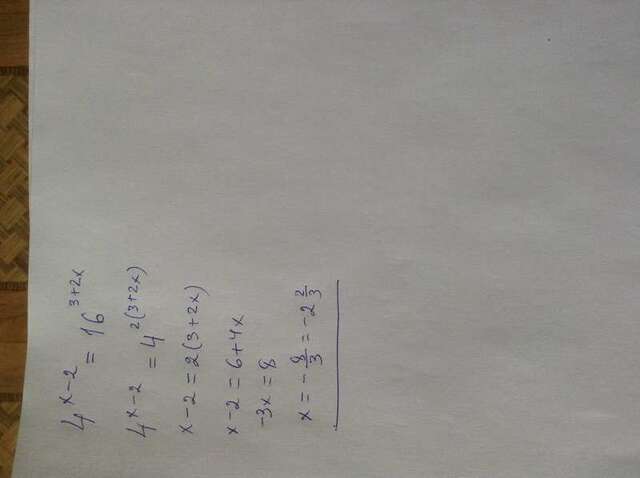 4^(x-2) = 16^(3+2x)
4^(x-2) = 4^(2(3+2x))
x-2=2(3+2x)
x-2=6+4x
-3x=8
x=-8/3=-2 2/3